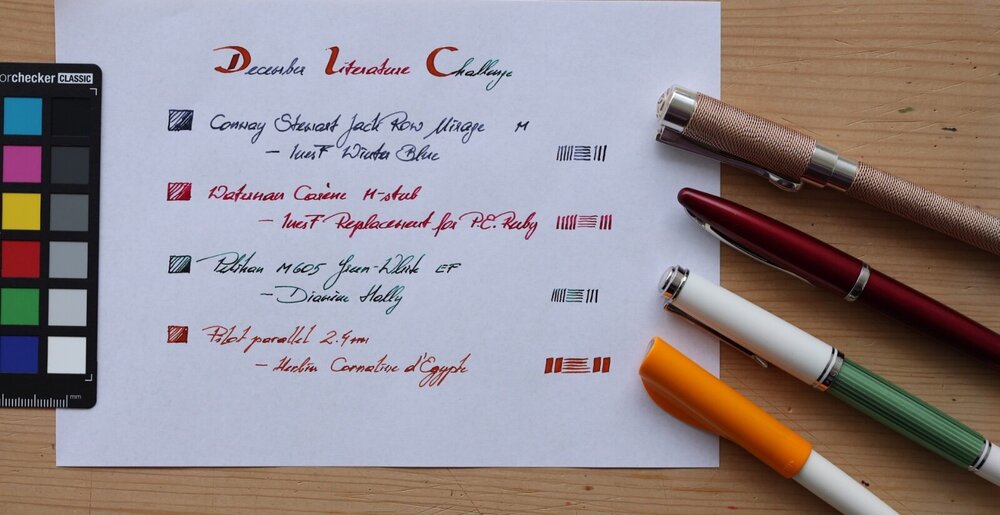 orchecker CLASSIC
December Literature Challenge
Conway Stewart Jack Row Mirage M
— InesF Winter Blue
Waterman Carène M-stub
— InesF Replacement for P.E. Ruby
Pelikan M605 Green-White EF
— Diamine Holly
Pilot parallel 2.4mm
— Herbin Cornaline d'Egypte
mm